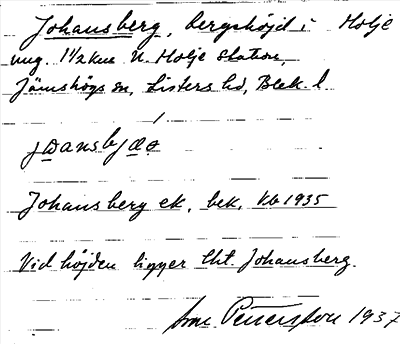 Johansberg, bergshöjd i Holje
ung. 1 1/2 km N. Holje station,
Jämshögs sn, Listers hd, Blek. l.
Johansberg ek, bek, kb 1935
Vid höjden ligger lht. Johansberg.
Petersson 1937